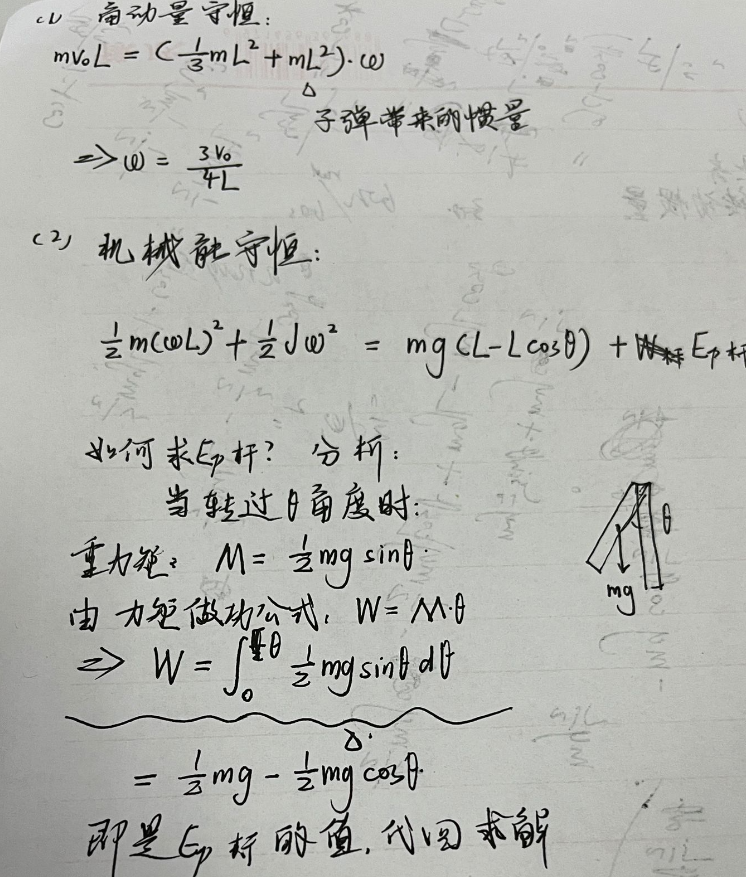 (1) 角动量守恒:
mv₀L = (⅓mL² + mL²)·ω
△
子弹带来的惯量
=> ω = 3v₀/4L
(2) 机械能守恒:
½m(ωL)² + ½Jω² = mg(L-Lcosθ) + Ep杆
如何求Ep杆? 分析:
当转过θ角度时:
重力矩: M = ½mg sinθ.
θ
mg
由力矩做功公式, W = M·θ
=> W = ∫₀^θ ½mg sinθ dθ
△.
= ½mg - ½mg cosθ.
即是Ep杆的值, 代回求解